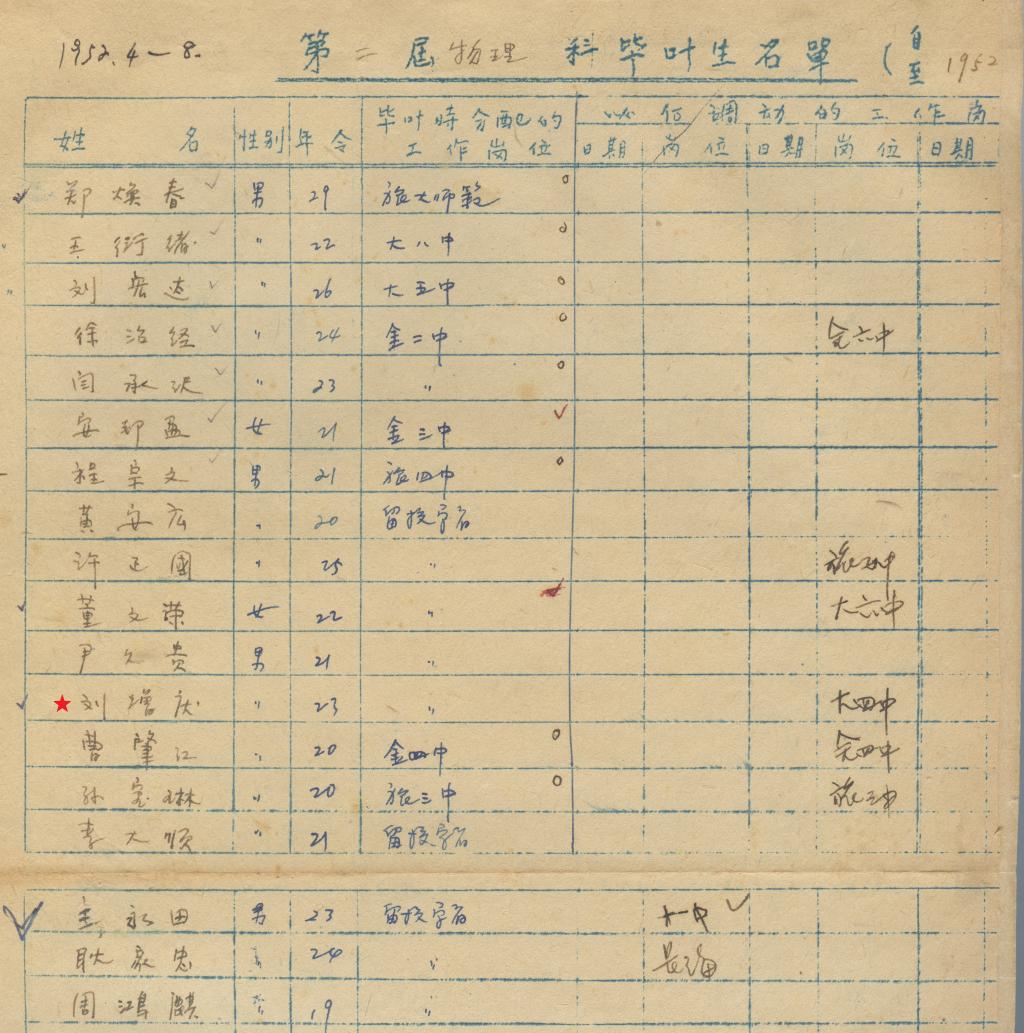 1952.4—8.
第二届物理科毕叶生名單(自至1952
姓名 性别 年令 毕叶時分配的工作岗位 以何調动的工作岗
日期 岗位 日期 岗位 日期
郑焕春 男 29 旅大师範
王衍绪 〃 22 大八中
刘宏达 〃 26 大五中
徐治经 〃 24 金二中 金六中
闫承沢 〃 23 〃
安郅盈 女 21 金三中
程宗文 男 21 旅四中
黄安広 〃 20 留校学習
许正國 〃 25 〃
董文荣 女 22 〃 大六中
尹久贵 男 21 〃
刘增庆 〃 23 〃 大四中
曹肇江 〃 20 金四中 金四中
孙宝琳 〃 20 旅三中 旅三中
李大顺 〃 21 留校学習
永田 男 23 留校学習 十一中
耿家忠 〃 24 〃 長海
周鴻麒 19 〃